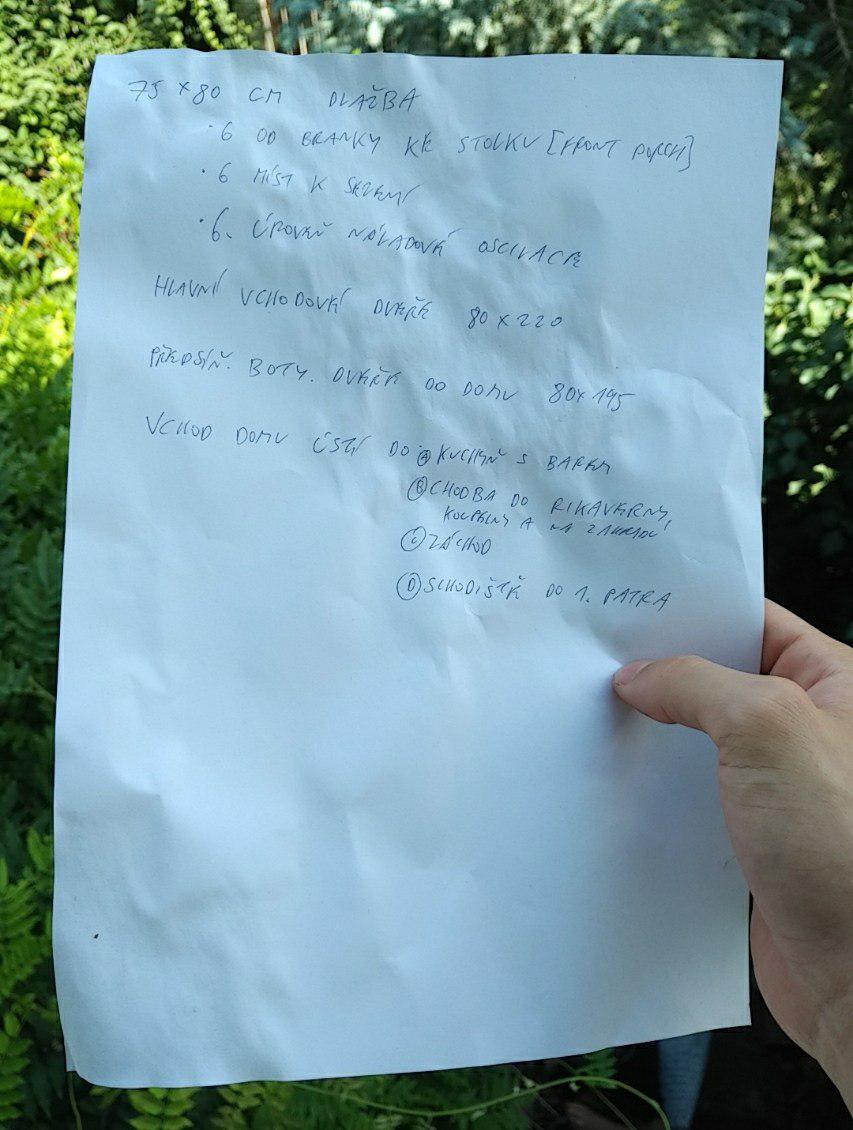 75 × 80 CM DLAŽBA
· 6 OD BRANKY KE STOLKU [FRONT PORCH]
· 6 MÍST K SEZENÍ
· 6. ÚROVEŇ NÁLADOVÉ OSCILACE
HLAVNÍ VCHODOVÉ DVEŘE 80 × 220
PŘEDSÍŇ. BOTY. DVEŘE DO DOMU 80 × 195
VCHOD DOMU ÚSTÍ DO: Ⓐ KUCHYŇ S BAREM
Ⓑ CHODBA DO
KOUPELNY A NA ZAHRADU
Ⓒ ZÁCHOD
Ⓓ SCHODIŠTĚ DO 1. PATRA